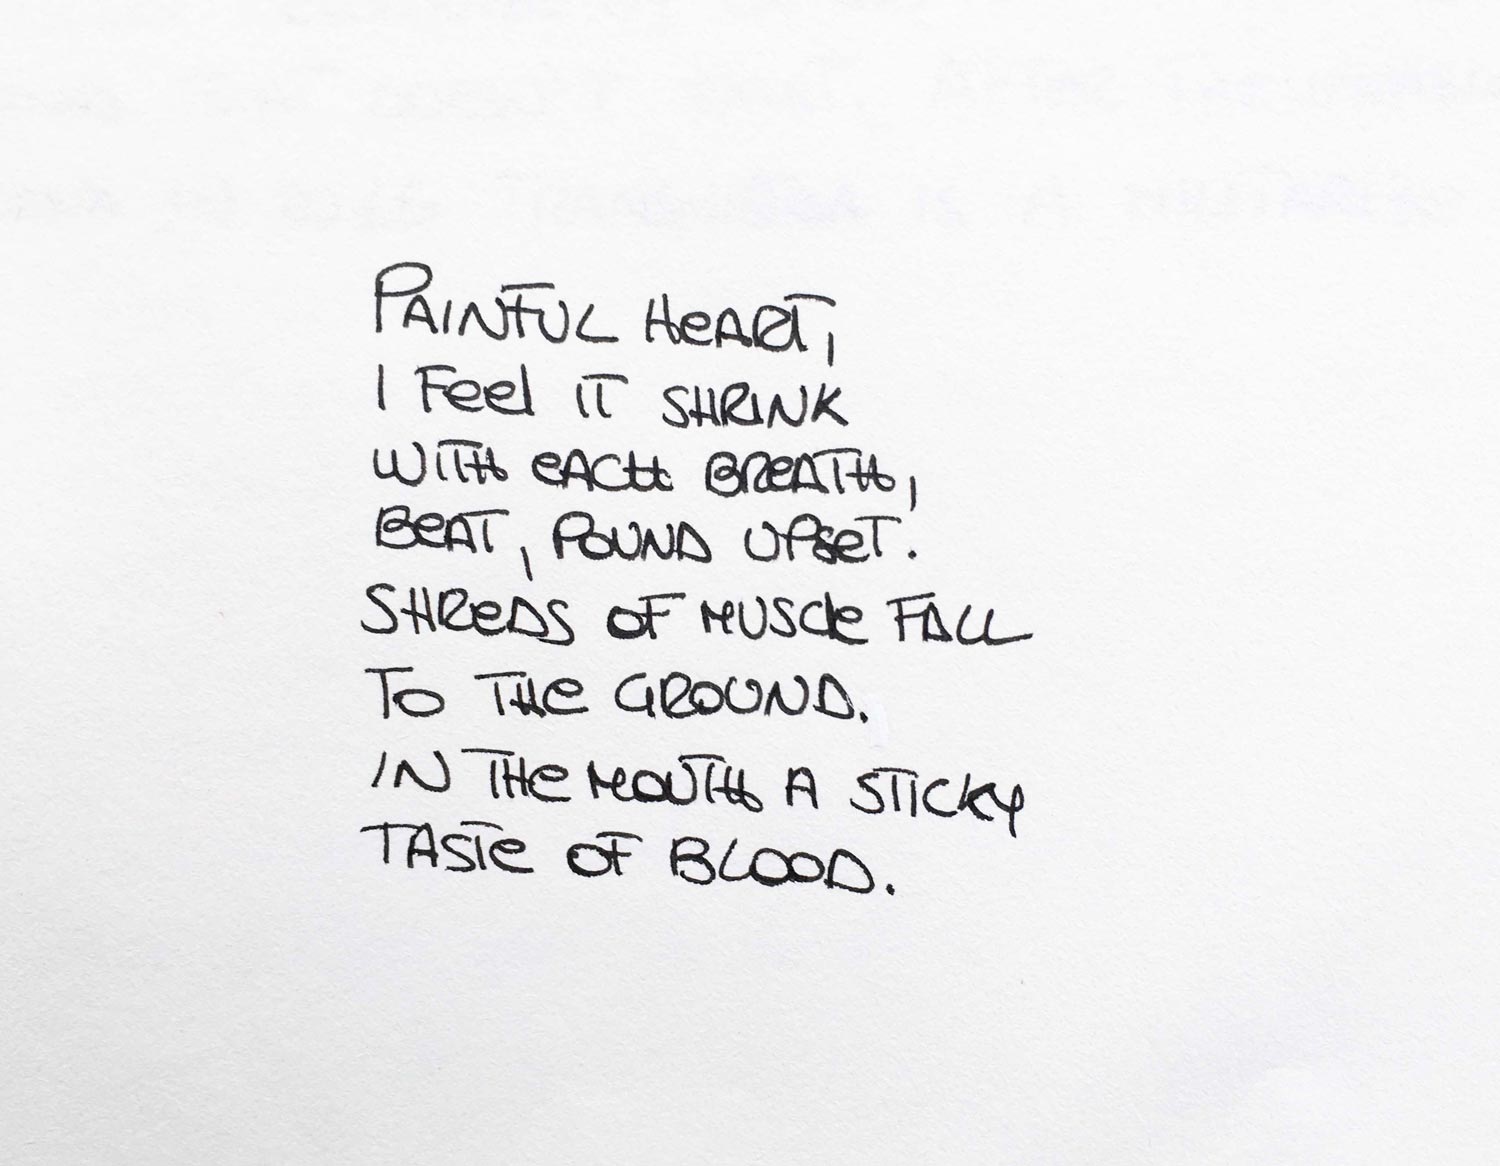 PAINFUL HEART,
I FEEL IT SHRINK
WITH EACH BREATH,
BEAT, POUND UPSET.
SHREDS OF MUSCLE FALL
TO THE GROUND.
IN THE MOUTH A STICKY
TASTE OF BLOOD.